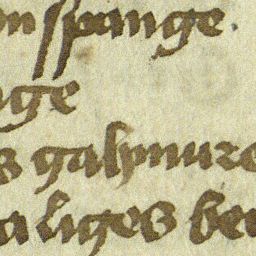 n spange.
ge
s galynure
aliges be